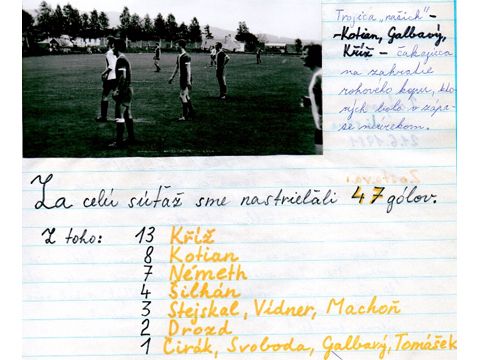 Trojica „našich" –
– Kotian, Galbavý,
Kříž – čakajúca
na zahratie
rohového kopu, kto-
rých bolo v zápa-
se neúrekom.
Za celú súťaž sme nastrieľali 47 gólov.
Z toho: 13 Kříž
8 Kotian
7 Németh
4 Šilhán
3 Stejskal, Vídner, Machoň
2 Drozd
1 Cirák, Svoboda, Galbavý, Tomášek